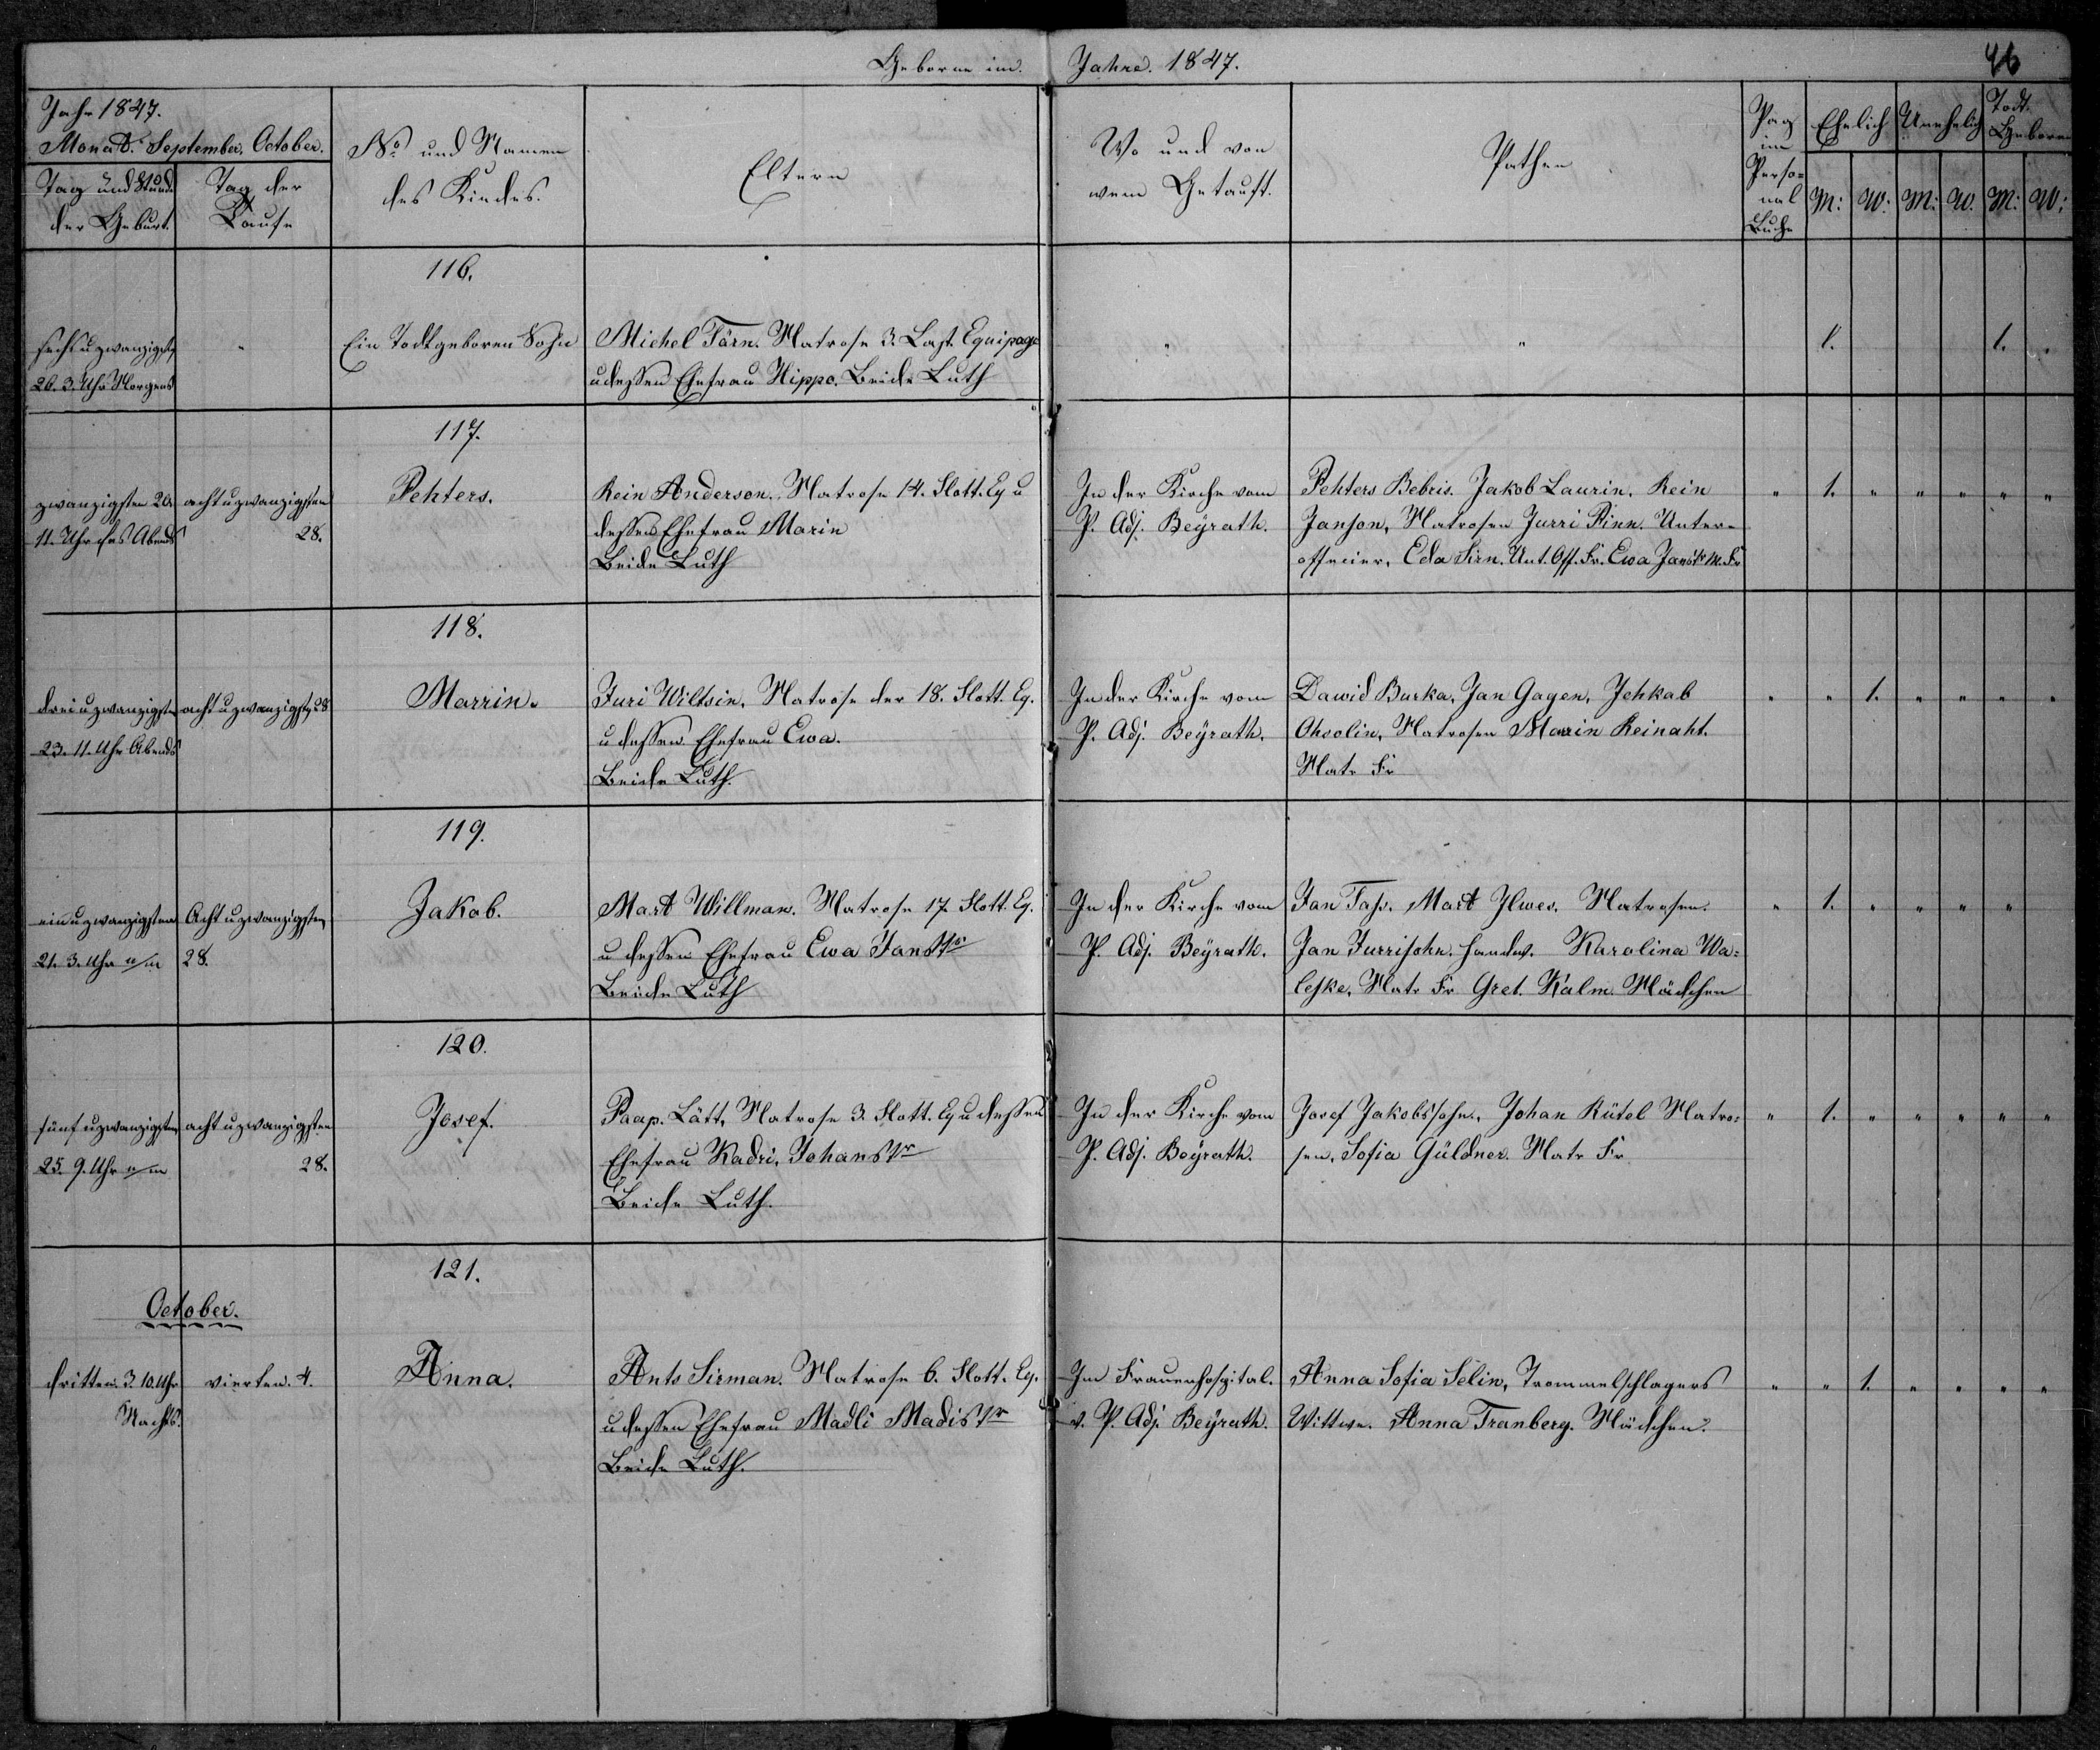 Geborne im Jahre 1847.
46
Jahr 1847.
Monat. September. October.
Tag und Stund. der Geburt.
Tag der Taufe
No und Namen des Kindes.
Eltern
Wo und von wem Getauft.
Pathen
Pag im Personal Buche
Ehelich
Unehelich
Todt Geboren
M: W: M: W. M: W:
116.
sechsuzwanzigsten
26. 3. Uhr Morgens
Ein Todtgeboren Sohn
Michel Tärn. Matrose 3. Last. Equipage
u dessen Ehefrau Hippo. Beide Luth
1. 1.
117.
zwanzigsten 20.
11. Uhr des Abends
achtuzwanzigsten
28.
Pehters.
Rein Anderson. Matrose 14. Flott. Eq u
dessen Ehefrau Marin
Beide Luth
In der Kirche vom
P. Adj. Beyrath.
Pehters Bebris. Jakob Laurin. Rein
Janson, Matrosen Jurri Finn. Unter-
officier, Eda Finn. Unt. Off. Fr. Ewa Janstr M. Fr
" 1. " " " " "
118.
dreiuzwanzigsten
23. 11. Uhr Abends
achtuzwanzigsten 28
Marrin.
Juri Wiltsin, Matrose der 18. Flott. Eq.
u dessen Ehefrau Ewa.
Beide Luth.
In der Kirche vom
P. Adj. Beyrath.
Dawid Burka, Jan Gagen, Jehkab
Ohsolin, Matrosen Marrin Reinaht.
Matr Fr
" " 1. " " " "
119.
einuzwanzigsten
21. 3. Uhr n/m
Achtuzwanzigsten
28.
Jakob.
Mart Willman. Matrose 17. Flott. Eq.
u dessen Ehefrau Ewa Janstr
Beide Luth
In der Kirche vom
P. Adj. Beyrath.
Jan Tass. Mart Ilwes. Matrosen.
Jan Jurrisohn. Handw. Karolina Wa-
leske, Matr Fr Gret. Kalm. Mädchen
" 1. " " " "
120.
fünfuzwanzigsten
25. 9. Uhr n/m
achtuzwanzigsten
28.
Josef.
Paap. Lätt, Matrose 3. Flott. Eq u dessen
Ehefrau Kadri, Johanstr
Beide Luth.
In der Kirche vom
P. Adj. Beyrath.
Josef Jakobssohn, Johan Rütel Matro-
sen, Sofia Güldner. Matr Fr
" 1. " " " " "
121.
October.
dritten 3. 10. Uhr
Nachts.
vierten. 4.
Anna.
Ants Sirman. Matrose 6. Flott. Eq.
u dessen Ehefrau Madli Madistr
Beide Luth.
Im Frauenhospital.
v. P. Adj. Beyrath.
Anna Sofia Selin, Trommelschlagers
Wittwe. Anna Tranberg. Mädchen.
" " 1. " " " "